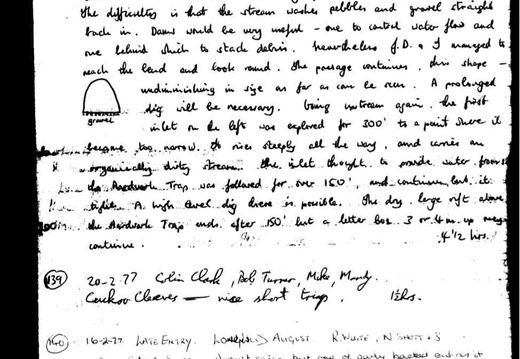 The difficulty is that the stream washes pebbles and gravel straight
back in. Dams would be very useful - one to control water flow and
one behind which to stack debris. Nevertheless J.D. & I managed to
reach the bend and look round. The passage continues, this shape -
undiminishing in size as far as can be seen. A prolonged
dig will be necessary. Going upstream again, the first
gravel
inlet on the left was explored for 300' to a point where it
became too narrow. It rises steeply all the way, and carries an
organically dirty stream. The inlet thought to provide water from
the Aardvark Trap was followed for over 150', and continues but it
tight. A high level dig there is possible. The dry large rift above
the Aardvark Trap ends after 150' but a letter box 3 or 4m up may
continue. 4 1/2 hrs.
139 20-2-77 Colin Clark, Bob Turner, Mike, Mandy.
Cuckoo Cleeves — nice short trip. 1½hrs.
140 16-2-77 LATE ENTRY. AUGUST. R. WHITE, N